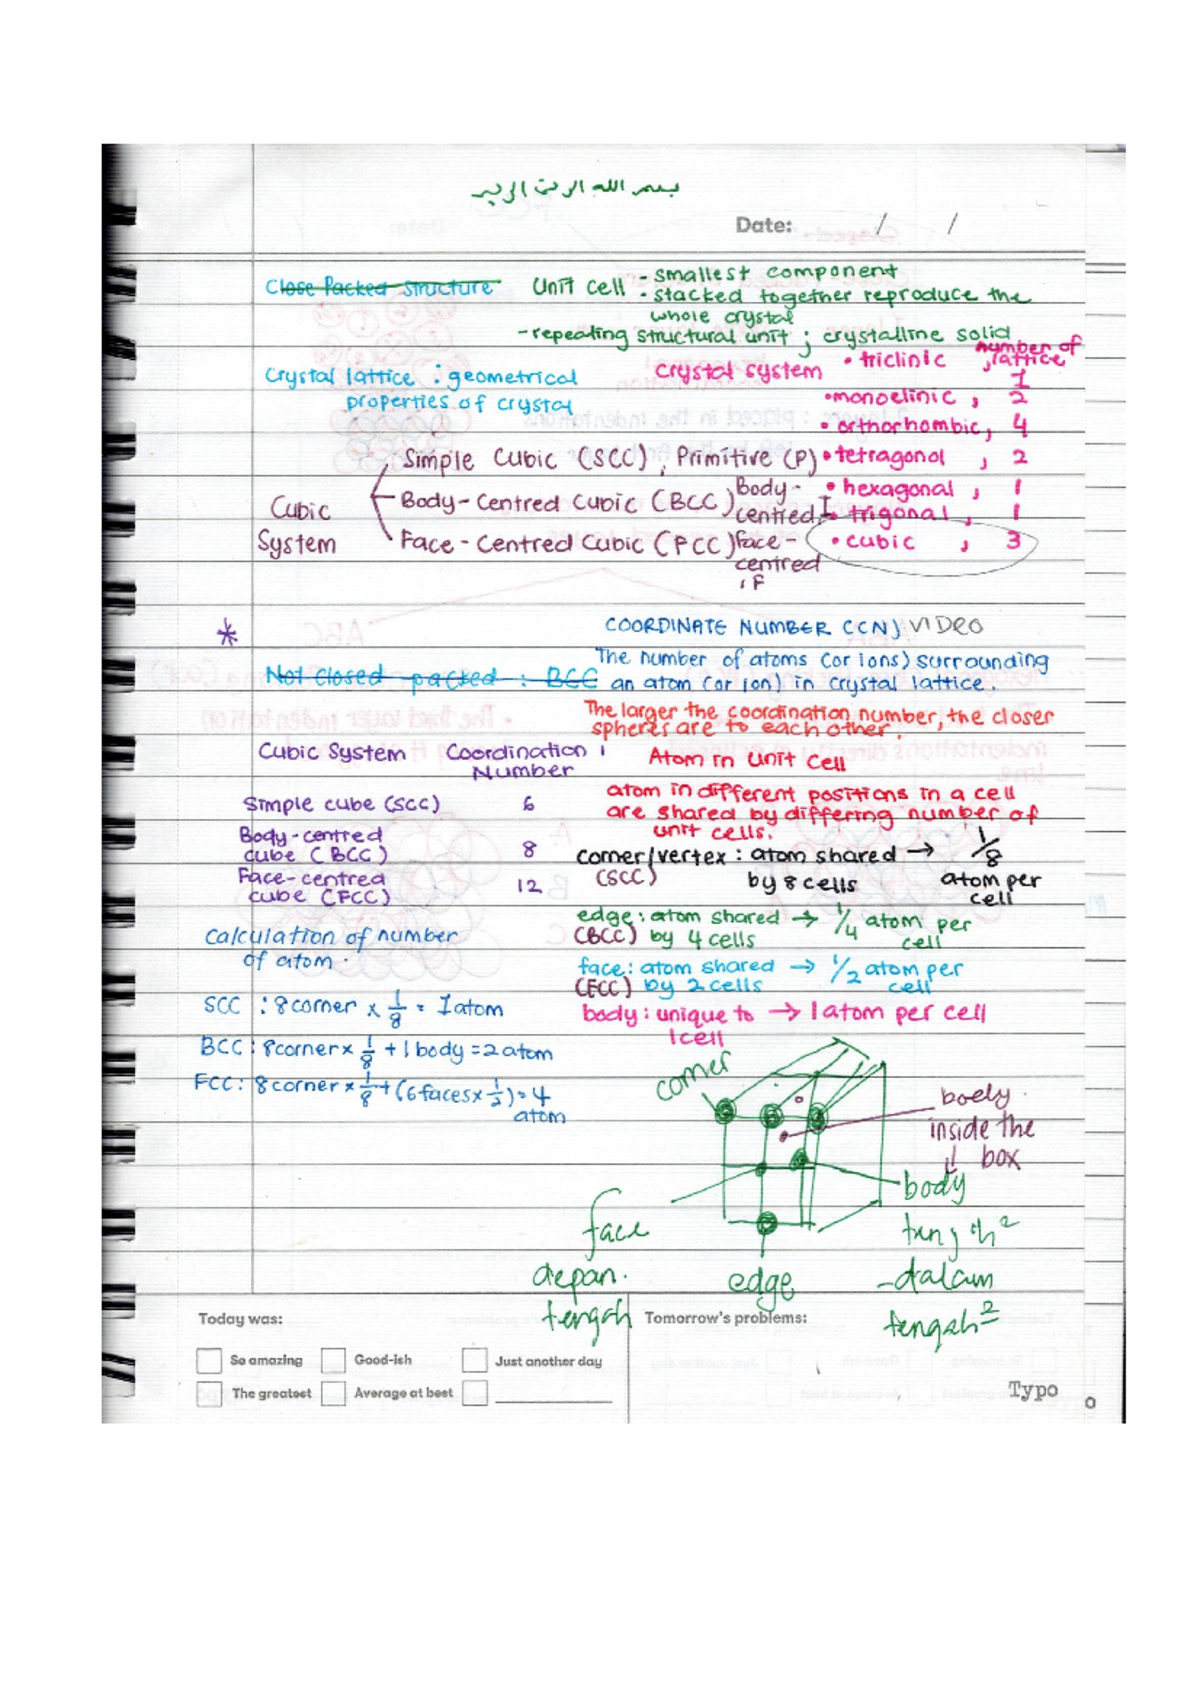 بسم الله الرحمن الرحيم
Date: / /
Close Packed Structure
Unit cell - smallest component
- stacked together reproduce the
whole crystal
- repeating structural unit ; crystalline solid
Crystal lattice : geometrical
properties of crystal
Crystal system
number of
lattice
• triclinic , 1
• monoclinic , 2
• orthorhombic, 4
• tetragonal , 2
• hexagonal , 1
• trigonal , 1
• cubic , 3
Cubic
System
Simple Cubic (SCC) , Primitive (P)
Body-Centred Cubic (BCC) Body-
centred, I
Face-Centred Cubic (FCC) Face-
centred
, F
*
COORDINATE NUMBER (CN) VIDEO
Not closed packed : BCC
The number of atoms (or ions) surrounding
an atom (or ion) in crystal lattice.
The larger the coordination number, the closer
spheres are to each other.
Cubic System Coordination
Number
Simple cube (SCC) 6
Body-centred
cube (BCC) 8
Face-centred
cube (FCC) 12
Calculation of number
of atom.
SCC : 8 corner x 1/8 = 1 atom
BCC : 8 corner x 1/8 + 1 body = 2 atom
FCC : 8 corner x 1/8 + (6 faces x 1/2) = 4
atom
Atom in Unit Cell
atom in different positions in a cell
are shared by differing number of
unit cells.
corner/vertex : atom shared → 1/8
(SCC) by 8 cells atom per
cell
edge : atom shared → 1/4 atom per
(BCC) by 4 cells cell
face : atom shared → 1/2 atom per
(FCC) by 2 cells cell
body : unique to → 1 atom per cell
1 cell
corner
body
inside the
box
body
face
depan
tengah
edge
dalam
tengah2
Today was:
So amazing Good-ish Just another day
The greatest Average at best
Tomorrow's problems:
Typo
o